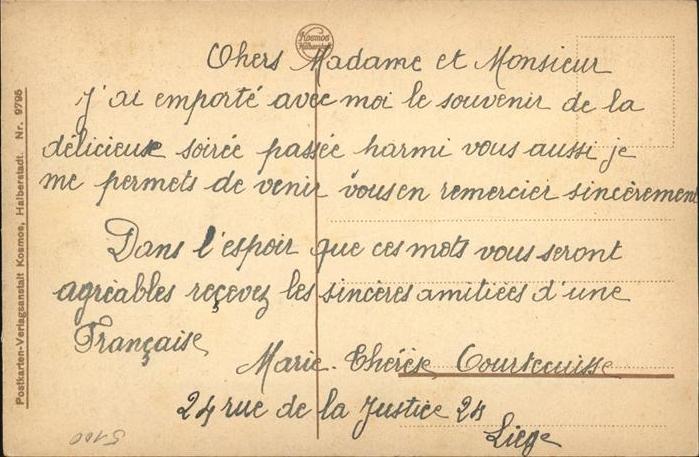 Kosmos
Halberstadt
Chers Madame et Monsieur
j'ai emporté avec moi le souvenir de la
délicieuse soirée passée parmi vous aussi je
me permets de venir vous en remercier sincèrement
Dans l'espoir que ces mots vous seront
agréables reçevez les sincères amitiées d'une
Française
Marie-Thérèse Courtecuisse
24 rue de la Justice 24
Liège
5100
Postkarten-Verlagsanstalt Kosmos, Halberstadt. Nr. 9795